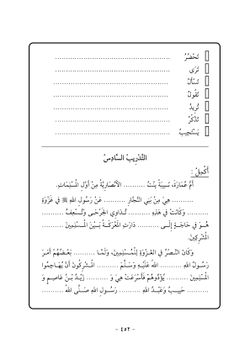 تَحْضُرُ ........................................
تَرَى ........................................
تَسْأَلُ ........................................
تَقُولُ ........................................
تُرِيدُ ........................................
تَذْكُرُ ........................................
يَسْتَجِيبُ ........................................
التَّدْرِيبُ السَّادِسُ
أَكْمِلْ :
أُمُّ عُمَارَةَ، نَسِيبَةُ بِنْتُ .......... الأَنْصَارِيَّةُ مِنْ أَوَّلِ المُسْلِمَاتِ.
.......... هِيَ مِنْ بَنِي النَّجَّارِ .......... عَنْ رَسُولِ اللهِ ﷺ فِي غَزْوَةِ
.......... وَكَانَتْ فِي هَذِهِ .......... تُدَاوِي الجَرْحَى وَتُسْعِفُ ..........
هُوَ فِي حَاجَةٍ إِلَى .......... دَارَتِ المَعْرَكَةُ بَيْنَ المُسْلِمِينَ ..........
المُشْرِكِينَ.
وَكَانَ النَّصْرُ فِي الغَزْوَةِ لِلْمُسْلِمِينَ، وَلَمَّا .......... بَعْضُهُمْ أَمْرَ
رَسُولِ اللهِ .......... اللهُ عَلَيْهِ وَسَلَّمَ .......... المُشْرِكُونَ أَنْ يُهَاجِمُوا
المُسْلِمِينَ .......... يُؤْذُوهُمْ فَأَسْرَعَتْ هِيَ وَ .......... زَيْدُ بْنُ عَاصِمٍ وَ
.......... حَبِيبٌ وَعَبْدُ اللهِ .......... رَسُولِ اللهِ صَلَّى اللهُ ..........
- ٤٥٢ -